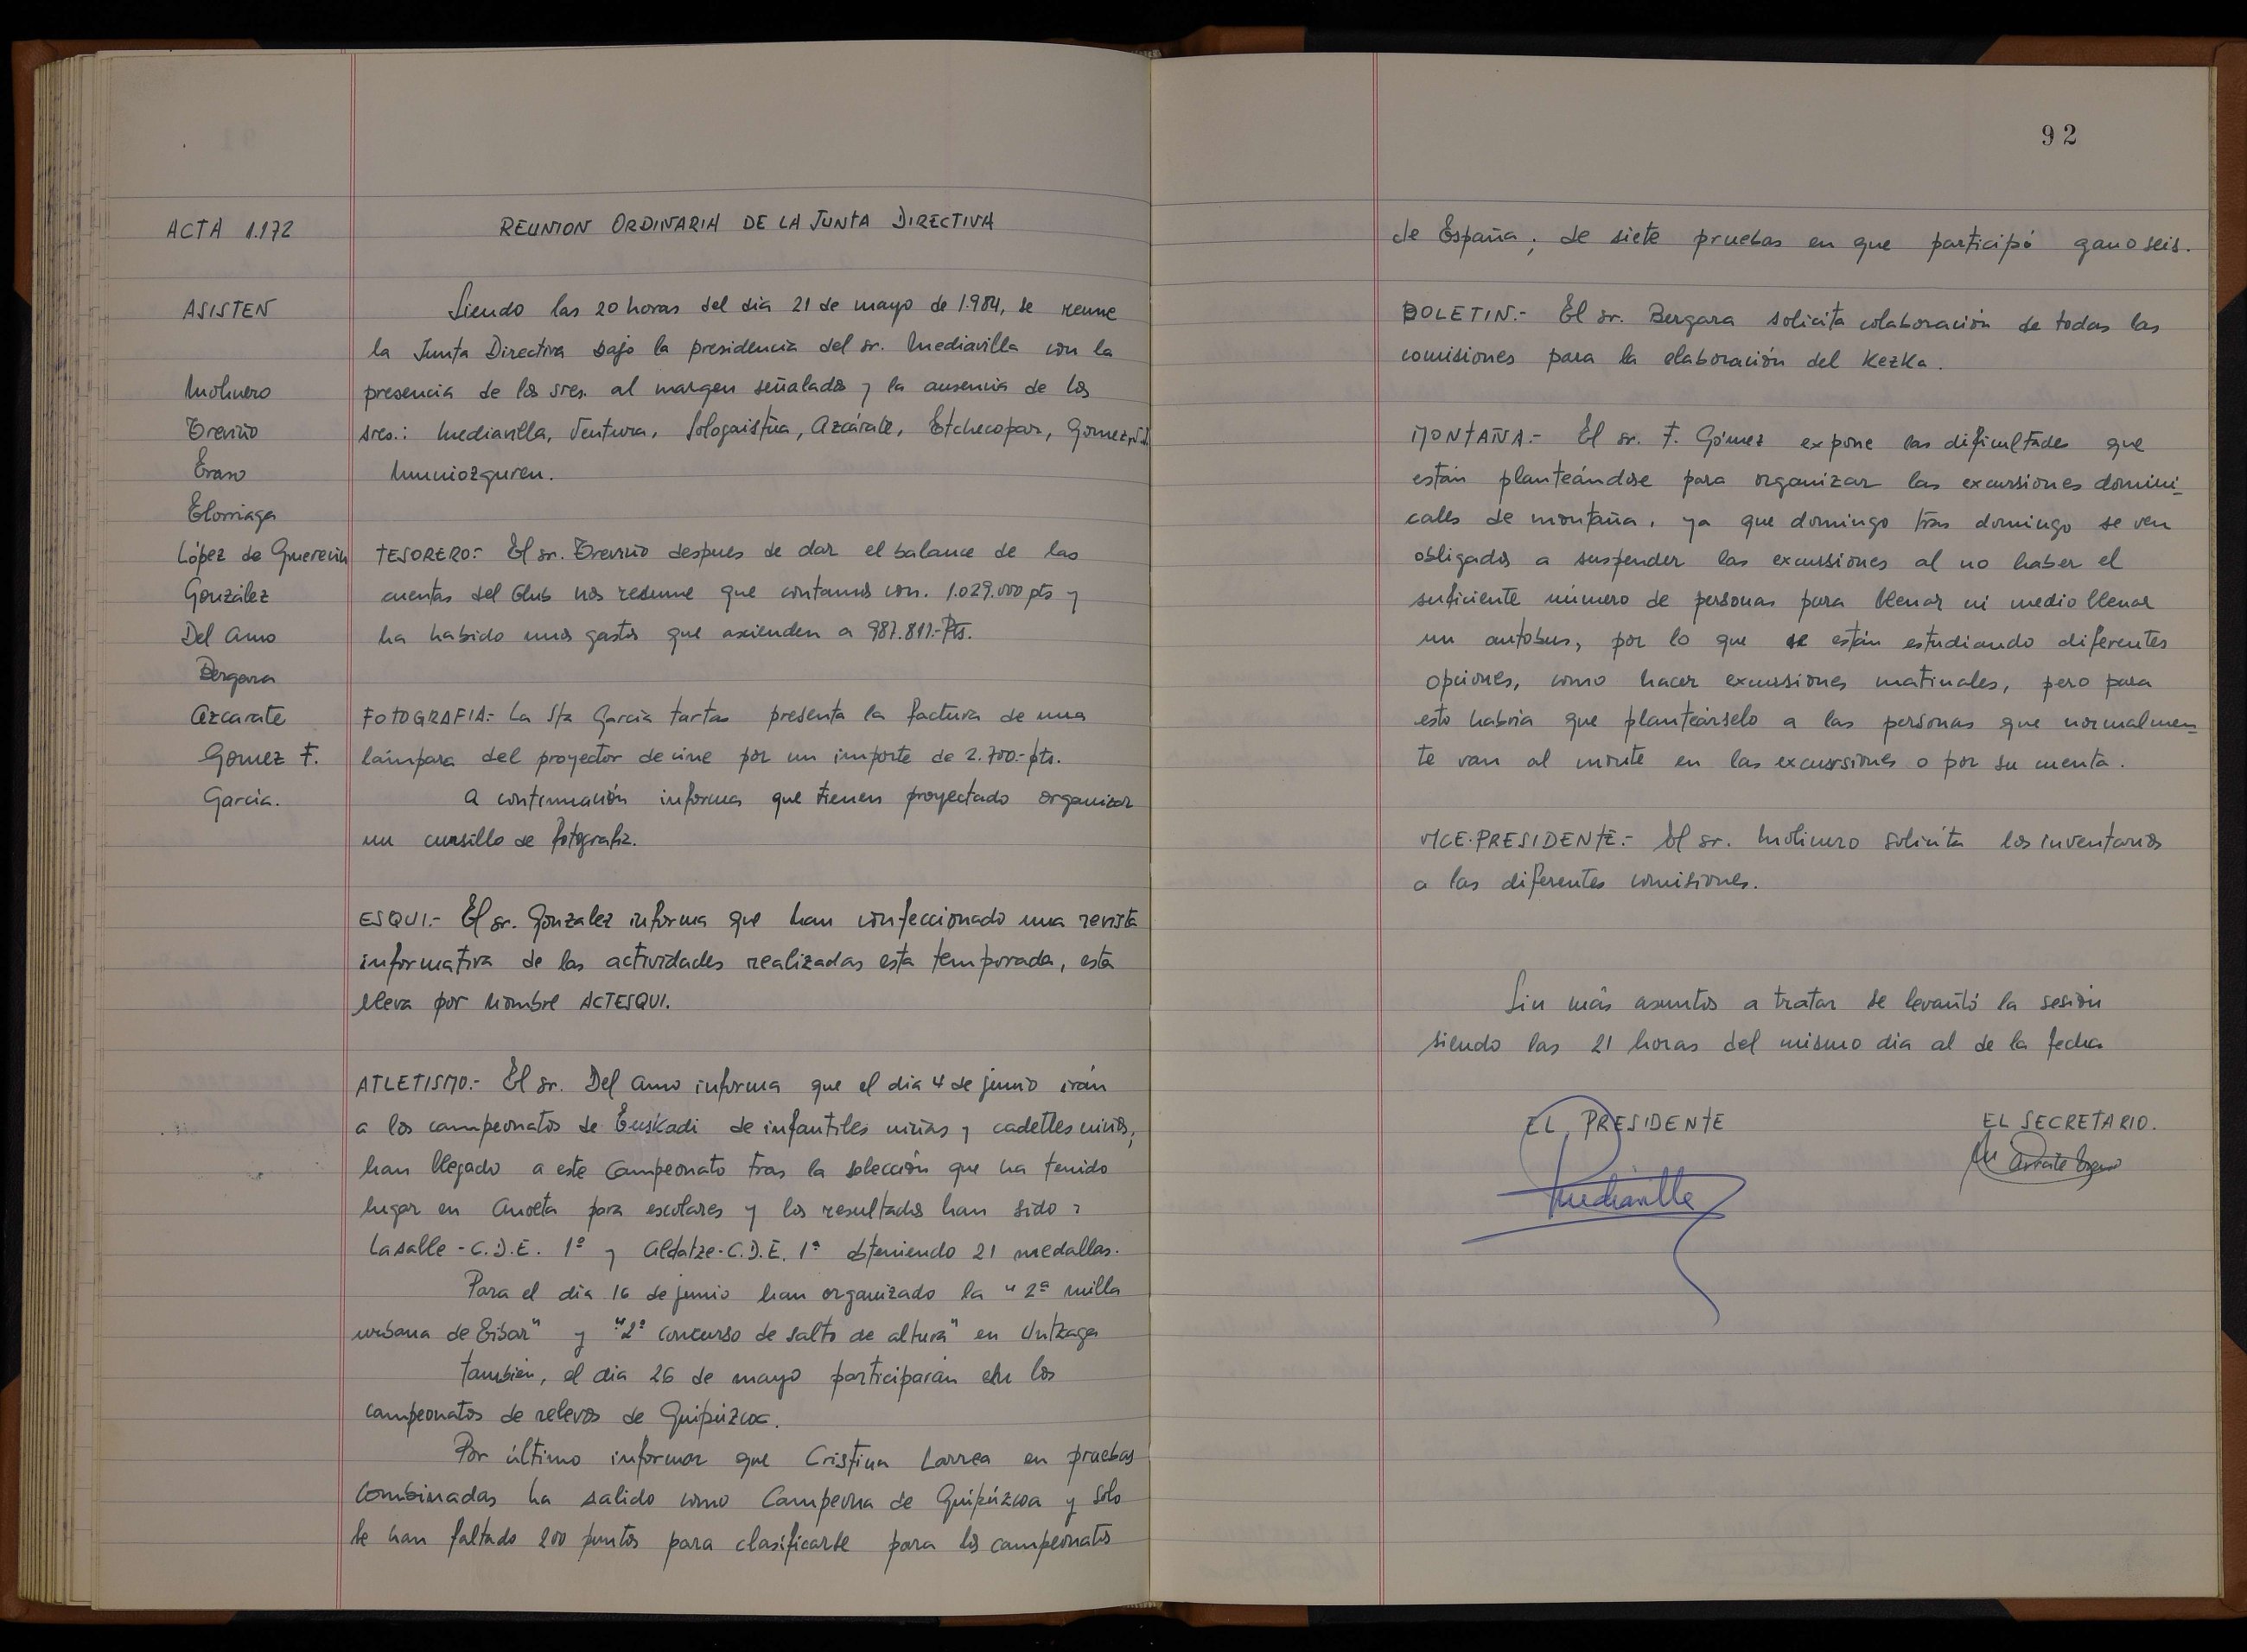 ACTA 1.172
REUNION ORDINARIA DE LA JUNTA DIRECTIVA
ASISTEN
Molinero
Treviño
Eraso
Elorriaga
López de Guereñu
González
Del Amo
Bergara
Azcarate
Gomez F.
García.
Siendo las 20 horas del dia 21 de mayo de 1.984, se reune
la Junta Directiva bajo la presidencia del sr. Mediavilla con la
presencia de los sres. al margen señalados y la ausencia de los
sres.: Mediavilla, Ventura, Sologaistua, Azcárate, Etchecopar, Gomez,
Muniozguren.
TESORERO:- El sr. Treviño despues de dar el balance de las
cuentas del Club nos resume que contamos con. 1.029.000 pts y
ha habido unos gastos que ascienden a 987.811.-Pts.
FOTOGRAFIA:- La Sta Garcia tartas presenta la factura de una
lámpara del proyector de cine por un importe de 2.700.-pts.
A continuación informa que tienen proyectado organizar
un cursillo de fotografia.
ESQUI.- El sr. Gonzalez informa que han confeccionado una revista
informativa de las actividades realizadas esta temporada, esta
lleva por nombre ACTESQUI.
ATLETISMO.- El sr. Del Amo informa que el dia 4 de junio irán
a los campeonatos de Euskadi de infantiles niñas y cadetes niños,
han llegado a este Campeonato tras la selección que ha tenido
lugar en Anoeta para escolares y los resultados han sido:
Lasalle - C.D.E. 1º y Aldatze-C.D.E. 1ª obteniendo 21 medallas.
Para el dia 16 de junio han organizado la "2ª milla
urbana de Eibar" y "2º concurso de salto de altura" en Untzaga
también, el dia 26 de mayo participarán en los
campeonatos de relevos de Guipúzcoa.
Por último informar que Cristina Larrea en pruebas
combinadas ha salido como Campeona de Guipúzcoa y solo
le han faltado 200 puntos para clasificarse para los campeonatos
92
de España; de siete pruebas en que participó gano seis.
BOLETIN.- El sr. Bergara solicita colaboración de todas las
comisiones para la elaboración del Kezka.
MONTAÑA.- El sr. F. Gómez expone las dificultades que
están planteándose para organizar las excursiones domini-
cales de montaña, ya que domingo tras domingo se ven
obligados a suspender las excursiones al no haber el
suficiente número de personas para llenar ni medio llenar
un autobus, por lo que se están estudiando diferentes
opciones, como hacer excursiones matinales, pero para
esto habria que planteárselo a las personas que normalmen-
te van al monte en las excursiones o por su cuenta.
VICE-PRESIDENTE.- El sr. Molinero solicita los inventarios
a las diferentes comisiones.
Sin más asuntos a tratar se levantó la sesión
siendo las 21 horas del mismo dia al de la fecha
EL PRESIDENTE
EL SECRETARIO.
Mediavilla